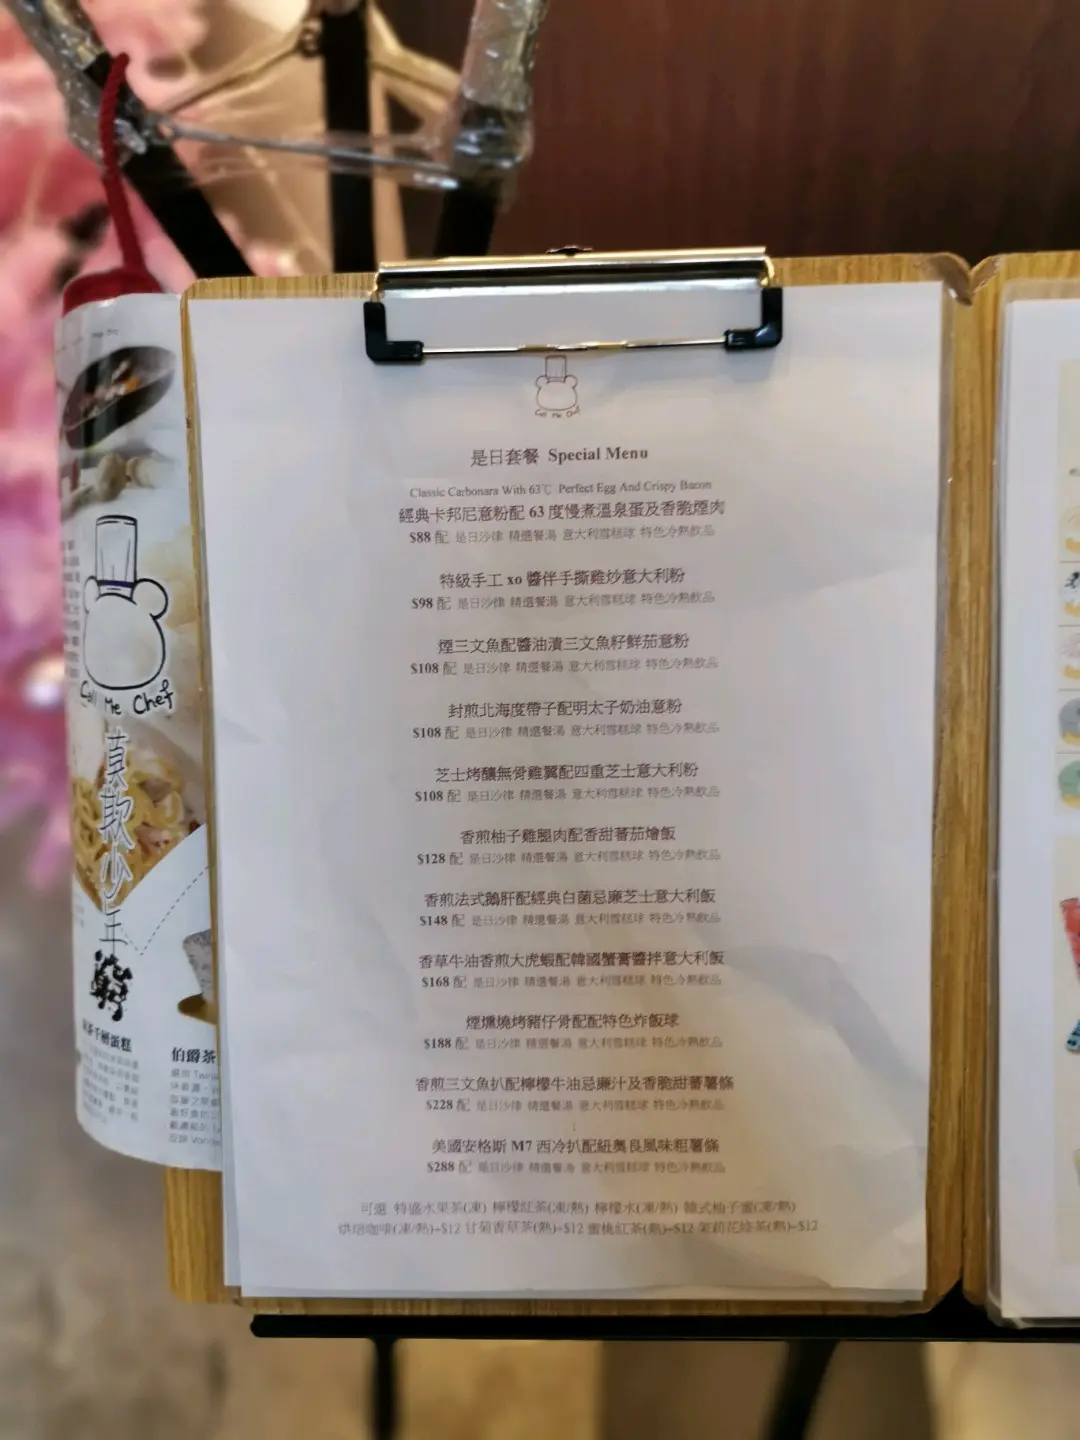 Call Me Chef
是日套餐 Special Menu
Classic Carbonara With 63℃ Perfect Egg And Crispy Bacon
經典卡邦尼意粉配 63 度慢煮溫泉蛋及香脆煙肉
$88 配 是日沙律 精選餐湯 意大利雪糕球 特色冷熱飲品
特級手工 xo 醬伴手撕雞炒意大利粉
$98 配 是日沙律 精選餐湯 意大利雪糕球 特色冷熱飲品
煙三文魚配醬油漬三文魚籽鮮茄意粉
$108 配 是日沙律 精選餐湯 意大利雪糕球 特色冷熱飲品
封煎北海度帶子配明太子奶油意粉
$108 配 是日沙律 精選餐湯 意大利雪糕球 特色冷熱飲品
芝士烤釀無骨雞翼配四重芝士意大利粉
$108 配 是日沙律 精選餐湯 意大利雪糕球 特色冷熱飲品
香煎柚子雞腿肉配香甜蕃茄燴飯
$128 配 是日沙律 精選餐湯 意大利雪糕球 特色冷熱飲品
香煎法式鵝肝配經典白菌忌廉芝士意大利飯
$148 配 是日沙律 精選餐湯 意大利雪糕球 特色冷熱飲品
香草牛油香煎大虎蝦配韓國蟹膏醬拌意大利飯
$168 配 是日沙律 精選餐湯 意大利雪糕球 特色冷熱飲品
煙燻燒烤豬仔骨配配特色炸飯球
$188 配 是日沙律 精選餐湯 意大利雪糕球 特色冷熱飲品
香煎三文魚扒配檸檬牛油忌廉汁及香脆甜蕃薯條
$228 配 是日沙律 精選餐湯 意大利雪糕球 特色冷熱飲品
美國安格斯 M7 西冷扒配紐奧良風味粗薯條
$288 配 是日沙律 精選餐湯 意大利雪糕球 特色冷熱飲品
可選 特選水果茶(凍) 檸檬紅茶(凍/熱) 檸檬水(凍/熱) 韓式柚子蜜(凍/熱)
烘焙咖啡(凍/熱)+$12 甘菊香草茶(熱)+$12 蜜桃紅茶(熱)+$12 茉莉花綠茶(熱)+$12
Call Me Chef
莫欺少年窮
千層蛋糕
伯爵茶